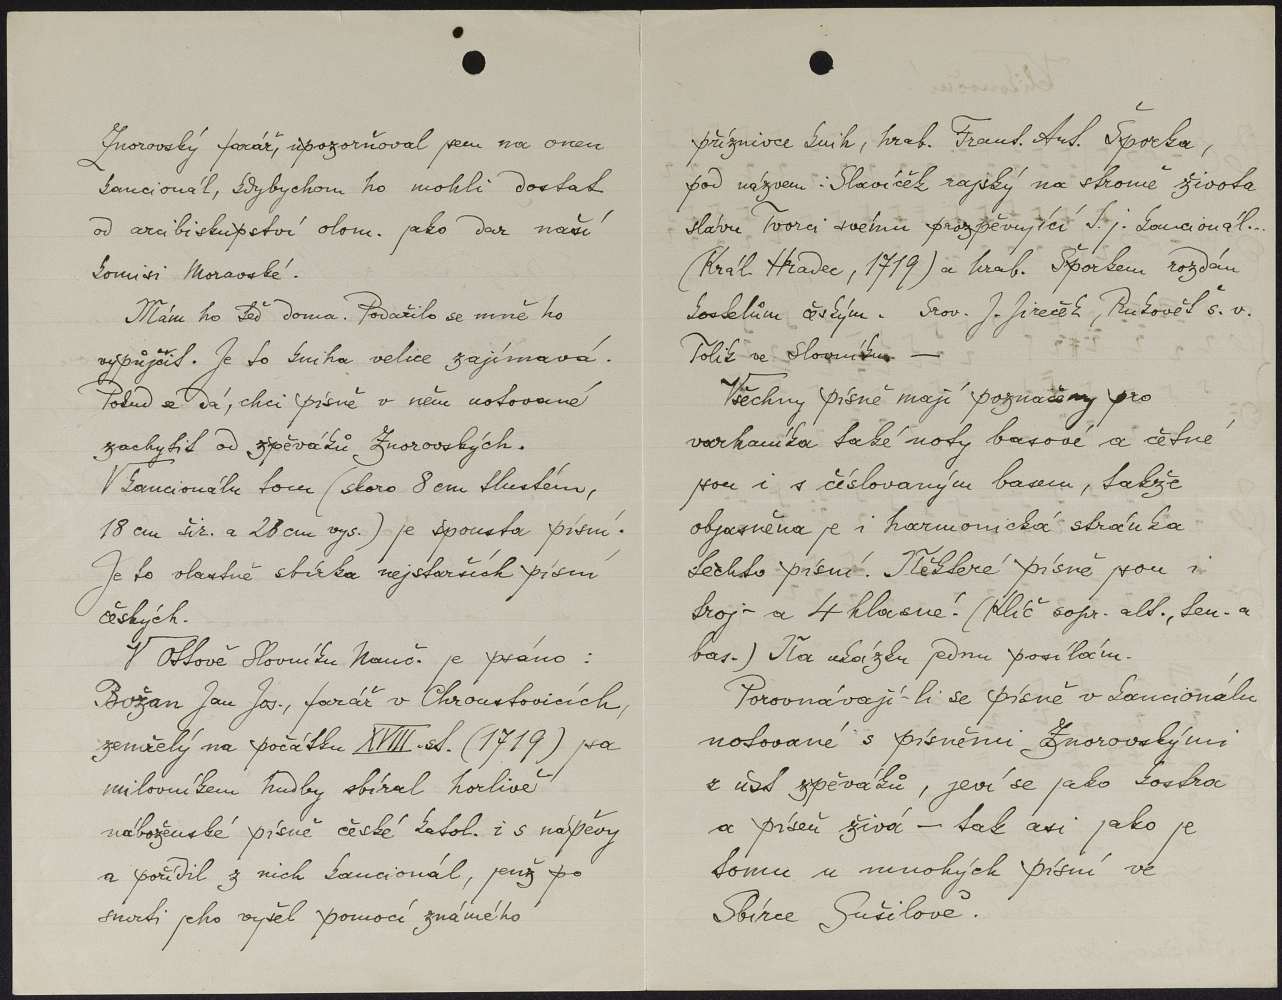 Znorovský farář, upozorňoval jsem na onen
kancionál, kdybychom ho mohli dostat
od arcibiskupství olom. jako dar naší
komisi Moravské.
Mám ho teď doma. Podařilo se mně ho
vypůjčit. Je to kniha velice zajímavá.
Pokud se dá, chci písně v něm notované
zachytit od zpěváků Znorovských.
V kancionálu tom (skoro 8 cm tlustém,
18 cm šir. a 28 cm vys.) je spousta písní.
Je to vlastně sbírka nejstarších písní
českých.
V Ottově Slovníku Nauč. je psáno:
Božan Jan Jos., farář v Chroustovicích,
zemřelý na počátku XVIII. st. (1719) jsa
milovníkem hudby sbíral horlivě
náboženské písně české katol. i s nápěvy
a pořídil z nich kancionál, jenž po
smrti jeho vyšel pomocí známého
příznivce knih, hrab. Frant. Ant. Šporka,
pod názvem: Slavíček rajský na stromě života
slávu Tvorci svému prozpěvující t. j. kancionál...
(Král. Hradec, 1719) a hrab. Šporkem rozdán
kostelům českým. Srov. J. Jireček, Rukověť s. v.
Tolik ve Slovníku —
Všechny písně mají poznačeny pro
varhaníka také noty basové a četné
jsou i s číslovaným basem, takže
objasněna je i harmonická stránka
těchto písní. Některé písně jsou i
troj- a 4 hlasné. (Klíč sopr. alt., ten. a
bas.) Na ukázku jednu posílám.
Porovnávají-li se písně v kancionálu
notované s písněmi Znorovskými
z úst zpěváků, jeví se jako kostra
a píseň živá — tak asi jako je
tomu u mnohých písní ve
Sbírce Sušilově.